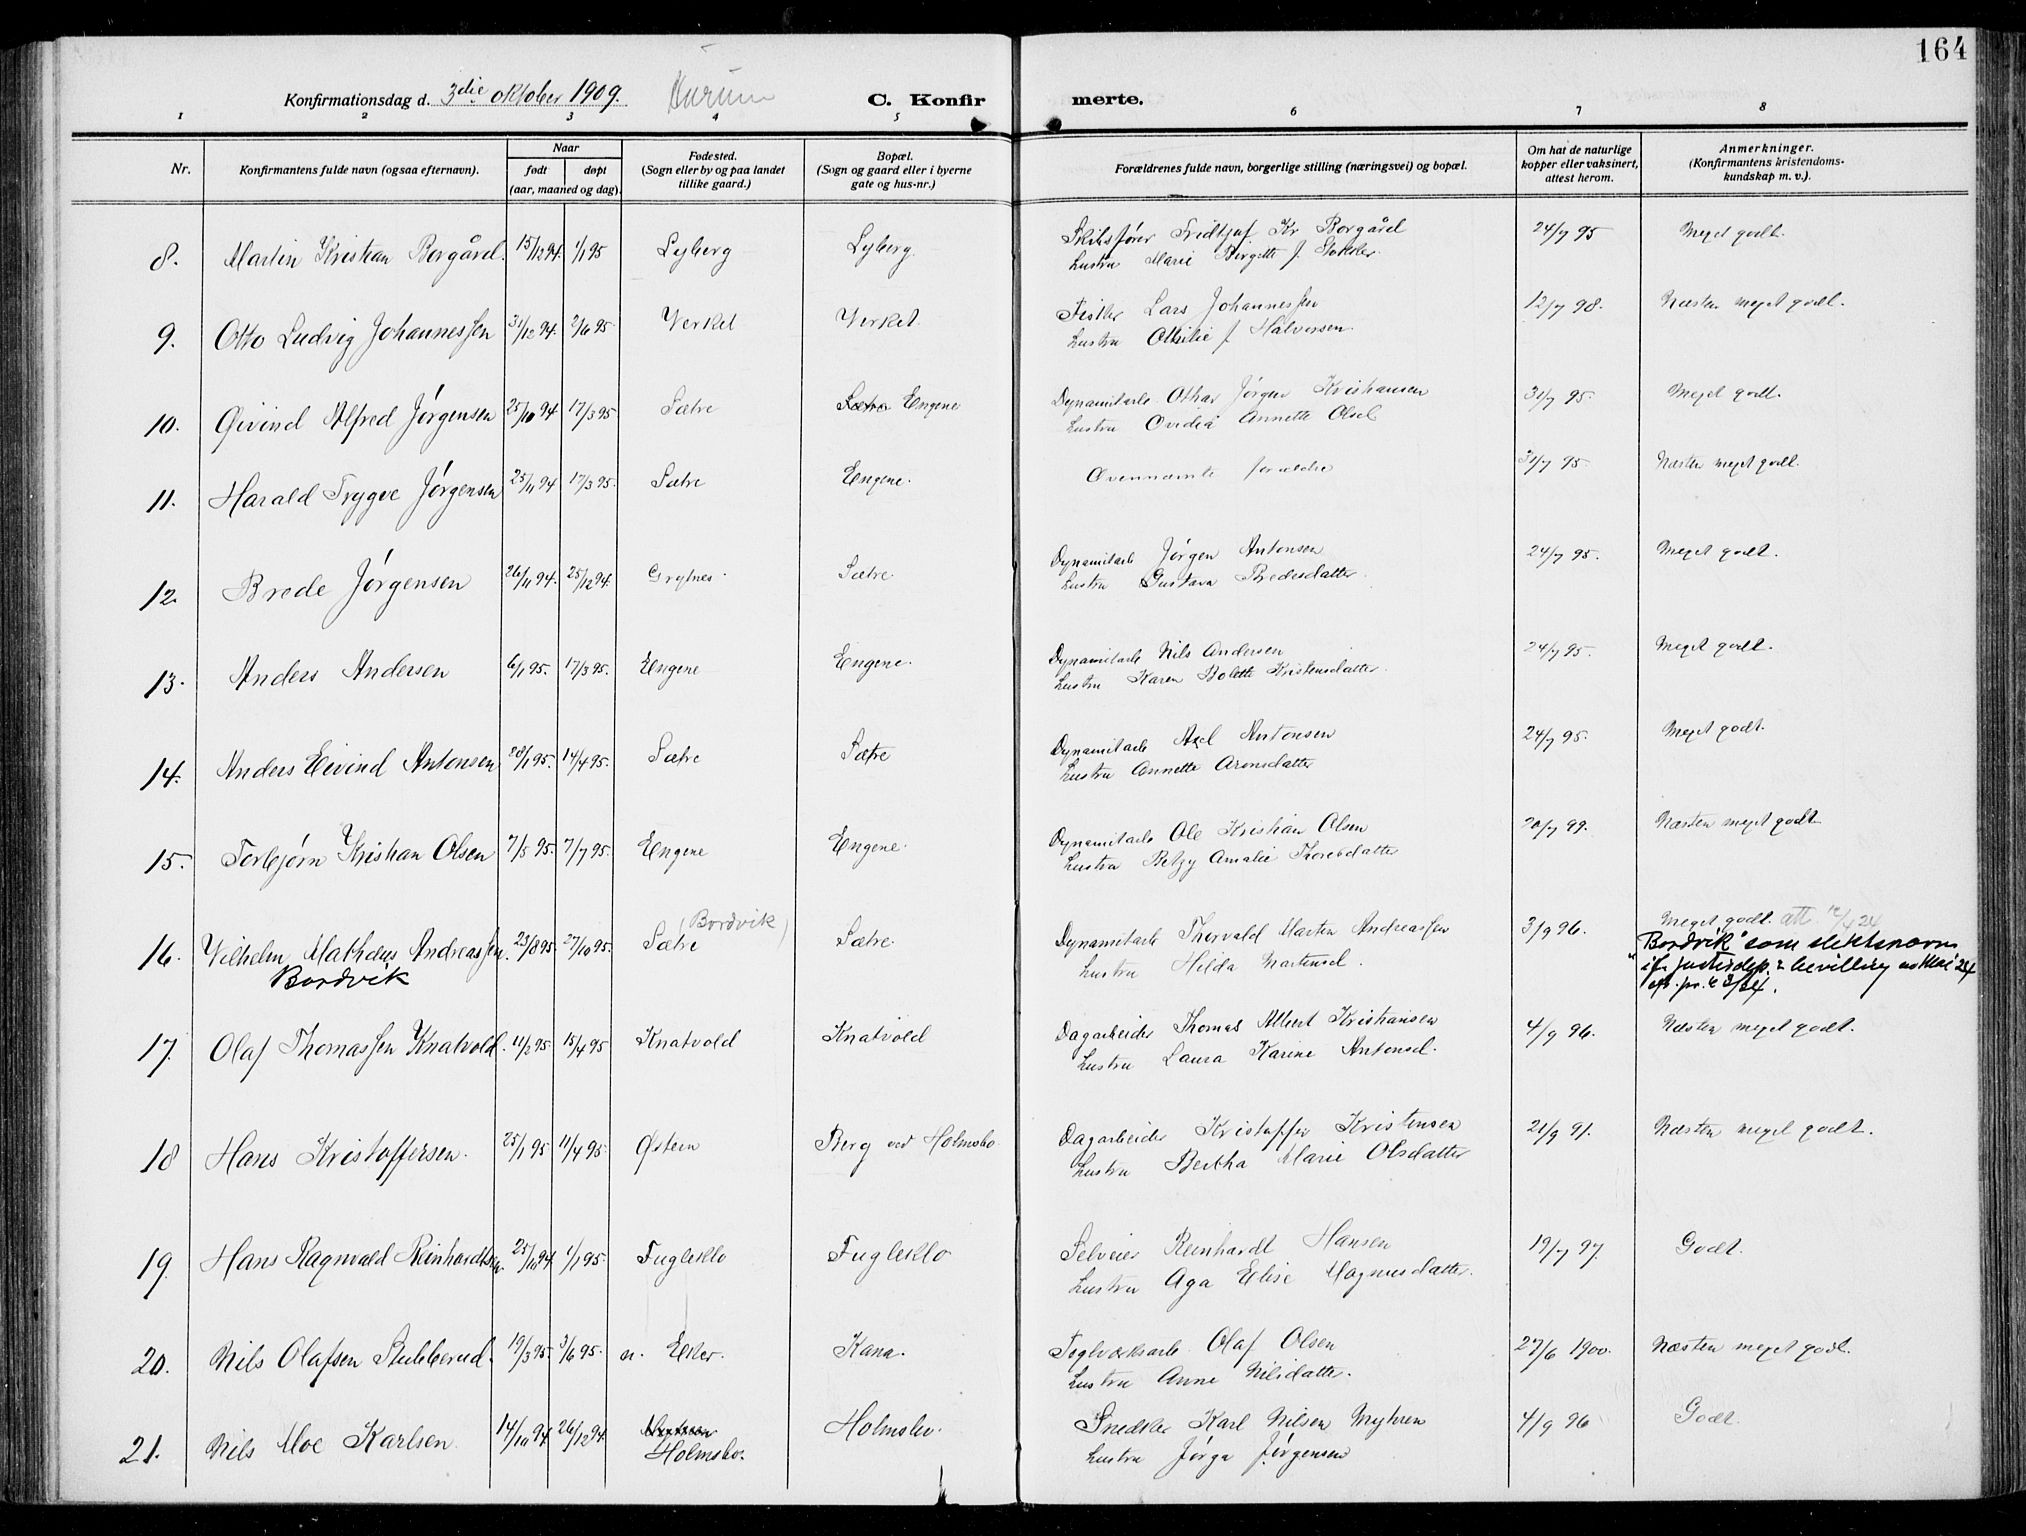 164
Konfirmationsdag d. 3die oktober 1909. Hurum C. Konfir merte.
1 2 3 4 5 6 7 8
Nr. Konfirmantens fulde navn (ogsaa efternavn). Naar født døpt (aar, maaned og dag). Fødested. (Sogn eller by og paa landet tillike gaard.) Bopæl. (Sogn og gaard eller i byerne gate og hus-nr.) Forældrenes fulde navn, borgerlige stilling (næringsvei) og bopæl. Om hat de naturlige kopper eller vaksinert, attest herom. Anmerkninger. (Konfirmantens kristendoms-kundskap m. v.).
8. Martin Kristian Borgård. 15/12 94. 1/1 95 Lyberg Lyberg. Skibsfører Fridtjof Kr Borgård 24/7 95 Meget godt.
Hustru Marie Birgitte f.
9. Otto Ludvig Johannessen 31/12 94. 2/6 95. Verket Verket. Fisker Lars Johannessen 12/7 98. Næsten meget godt.
Hustru Othilie f Halvorsen.
10. Øivind Alfred Jørgensen 25/10 94 17/3 95. Sætre Sætre Engene Dynamitarb Othar Jørgen Kristiansen 31/7 95. Meget godt.
Hustru Ovidia Annette Olsd
11. Harald Trygve Jørgensen 25/11 94 17/3 95. Sætre Engene. Ovennævnte forældre 31/7 95. Næsten meget godt.
12. Brede Jørgensen 26/11 94. 25/12 94. Grytnes. Sætre Dynamitarb Jørgen Antonsen 24/7 95. Meget godt.
Hustru Gustava Bredesdatter.
13. Anders Andersen 6/1 95. 17/3 95. Engene Engene. Dynamitarb Nils Andersen 24/7 95. Meget godt.
Hustru Karen Bolette Kristensdatter.
14. Anders Eivind Antonsen 28/1 95. 14/4 95. Sætre Sætre Dynamitarb Axel Antonsen 24/7 95. Meget godt.
Hustru Annette Aronsdatter
15. Torbjørn Kristian Olsen 7/5 95. 7/7 95. Engene Engene. Dynamitarb Ole Kristian Olsen 20/7 99. Næsten meget godt
Hustru Betzy Amalie Thoresdatter
16. Vilhelm Mathæus Andreassen. 23/8 95. 27/10 95. Sætre (Bordvik) Sætre. Dynamitarb Thorvald Martin Andreassen 3/9 96. Meget godt. att. 12/4 24
Bordvik Hustru Hilda Martinsd. "Bordvik" som slektsnavn
if. justisdep.s bevilling av Mai 24
17. Olaf Thomassen Knatvold. 11/2 95 15/4 95 Knatvold Knatvold Dagarbeider Thomas Albert Kristiansen 4/9 96. Næsten meget godt.
Hustru Laura Karine Antonsd.
18 Hans Kristoffersen. 25/1 95 11/4 95. Østern Berg ved Holmsbo Dagarbeider Kristoffer Kristensen 21/9 91. Næsten meget godt.
Hustru Bertha Marie Olsdatter
19. Hans Ragnvald Reinhardtsen. 25/10 94 1/1 95. Fugleklo Fugleklo Selveier Reinhardt Hansen 19/7 97. Godt.
Hustru Aga Elise Magnusdatter.
20. Nils Olafsen Stubberud. 19/3 95. 3/6 95. n. Eker. Kana. Teglverksarb. Olaf Olsen 27/6 1900. Næsten meget godt.
Hustru Anne Nilsdatter.
21. Nils Moe Karlsen. 14/10 94. 26/12 94. Holmsbo. Holmsbo. Snedker Karl Nilsen Myhren 4/9 96 Godt.
Hustru Jørga Jørgensen